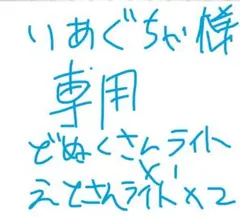 りあぐちゃ様
専用
どぬくさんライト
×1
えとさんライト×2